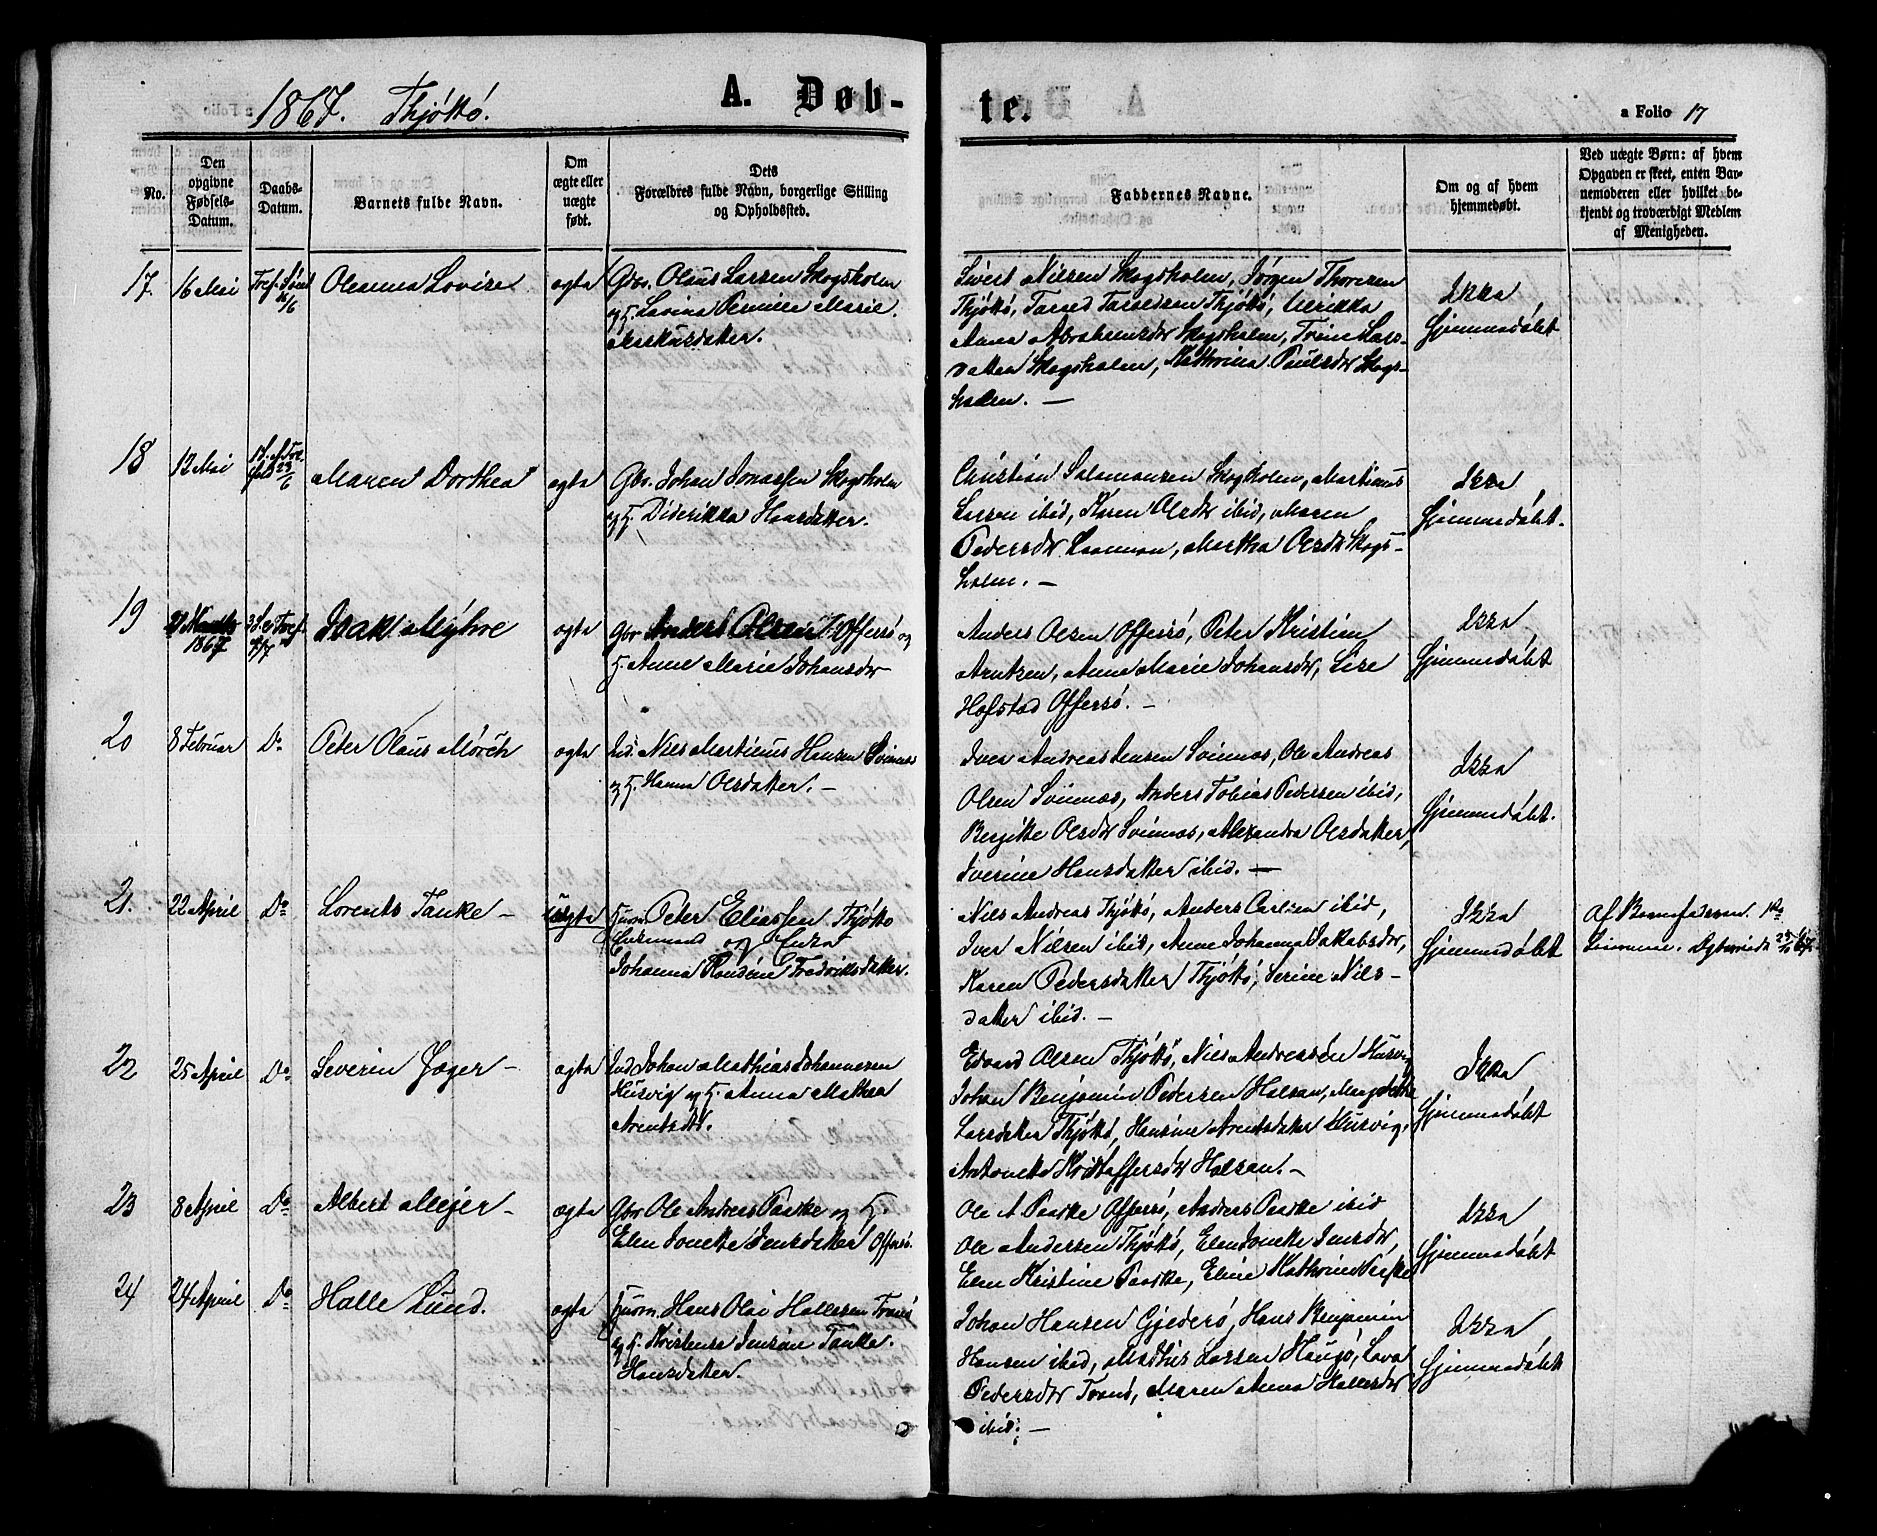 1867. Thjøttø.
A. Døb-
te.
a Folio 17
No.
Den opgivne Fødsels-Datum.
Daabs-Datum.
Barnets fulde Navn.
Om ægte eller uægte født.
Dets Forældres fulde Navn, borgerlige Stilling og Opholdssted.
Faddernes Navne.
Om og af hvem hjemmedøbt.
Ved uægte Børn: af hvem Opgaven er skeet, enten Barnemoderen eller hvilket bekjendt og troværdigt Medlem af Menigheden.
17. 16 Mai
Oleanna Lovise
ægte
Gbr. Olaus Larsen Skogsholm
og H. Lavina Pernille Marie
Sivert Nilsen Skogsholm, Jørgen Thoresen
Thjøttø, Thjøttø, Ulrikka
Anna Abrahamsdr Skogsholm, Trine Lars-
datter Skogsholm, Kathrina Paulsdr Skogs-
holm. —
Ikke
Hjemmedøbt
18 13 Mai
Maren Dorthea
ægte
Gbr. Johan Jonassen Skogsholm
og H. Diderikka Hansdatter.
Christian Salamonsen Skogsholm, Martinus
Larsen ibid, Karen Olsdr ibid, Maren
Pedersdr, Martha Olsdr Skogs-
holm. —
Ikke
Hjemmedøbt.
19
1867
Isak Myhre
ægte
Gbr Anders Olsen Offersø og
H. Anne Marie Johansdr
Anders Olsen Offersø, Peter Kristian
Arntzen, Anne Marie Johansdr, Lise
Hofstad Offersø. —
Ikke
Hjemmedøbt
20 8 Februar Do
Peter Olaus Mørch
ægte
Ind. Nils Martinus Hansen Svinnes
og H. Hanna Olsdatter. —
Iver Andreas Jensen Svinnes, Ole Andreas
Olsen Svinnes, Anders Tobias Pedersen ibid,
Bergitte Olsdr Svinnes, Alexandra Olsdatter,
Iverine Hansdatter ibid. —
Ikke
Hjemmedøbt.
21. 22 April Do
Lorents Tanke —
uægte
Peter Eliassen Thjøttø
Enkemand og Enke
Johanna Fredriksdatter.
Nils Andreas Thjøttø, Anders Carlsen ibid,
Iver Nilsen ibid, Anne Johanna Jakobsdr,
Karen Pedersdatter Thjøttø, Serine Nils-
datter ibid. —
Ikke
Hjemmedøbt
Af Barnefaderen.
22 25 April Do
Severin Jæger —
ægte
Ind Johan Mathias Johannesen
Husvig og H. Anna Mathea
Arentsdtr.
Edvard Olsen Thjøttø, Nils Andreassen Husvig
Johan Benjamin Pedersen
Larsdatter Thjøttø, Hansine Arentsdatter Husvig,
Ikke
Hjemmedøbt
23 8 April Do
Albert Mejer —
ægte
Gbr Ole Andreas Paaske og H.
Elen Jonette Jensdatter Offersø.
Ole A Paaske Offersø, Anders Paaske ibid
Ole Andersen Thjøttø, Elen Jonette Jensdr,
Elen Kristine Paaske, Eline Kathrine
Ikke
Hjemmedøbt
24 24 April Do
Halle Lund.
ægte
Husm. Hans Olai Hallesen Tranø
og H. Kristense Jensine Tanke
Hansdatter.
Johan Hansen Gjederø, Hans Benjamin
Hansen ibid, Mathis Larsen Haugø,
Pedersdr Tranø, Maren Anna Hallesdr
ibid. —
Ikke
Hjemmedøbt